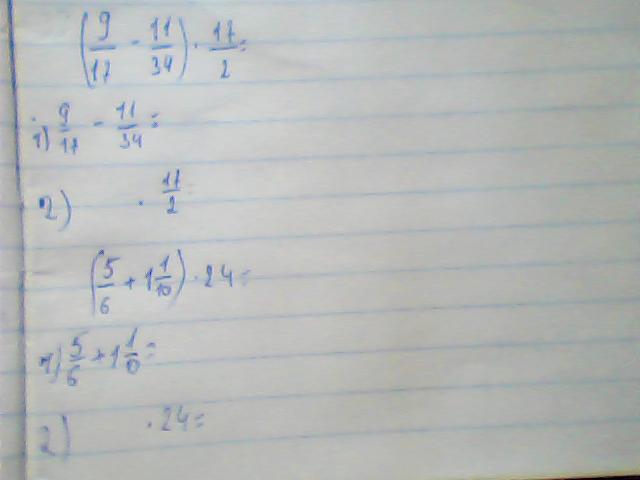 (9/17 - 11/34) · 17/2 =
1) 9/17 - 11/34 =
2) · 17/2 =
(5/6 + 1 1/10) · 24 =
1) 5/6 + 1 1/10 =
2) · 24 =